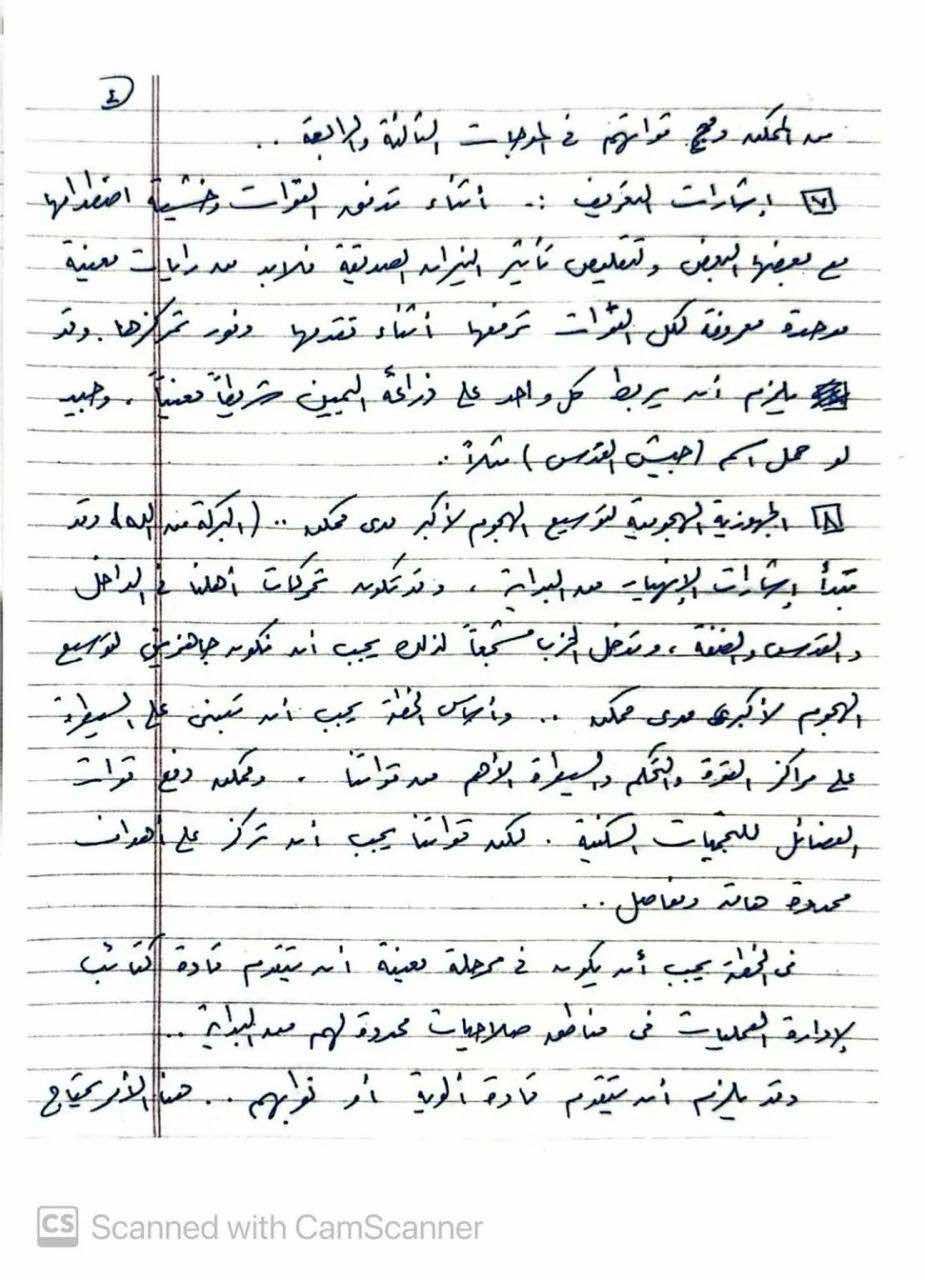 ٤
من الممكن دمج قواتهم في الموجات الثالثة والرابعة ..
٧ إشارات التعريف :. أثناء تدفق القوات وخشية اصطدامها
مع بعضها البعض ولتقليص تأثير النيران الصديقة فلابد من رايات معينة
موحدة معروفة لكل القوات ترفعها أثناء تقدمها وفور تمركزها. وقد
يلزم أن يربط كل واحد على ذراعه اليمين شريطاً معيناً ، وحبيذ
لو حمل اسم (جيش القدس) مثلاً ..
٨ الجهوزية الهجومية لتوسيع الهجوم لأكبر مدى ممكن .. (البركة من الله) وقد
تبدأ إشارات الإنهيار من البداية ، وقد تكون تحركات أهلنا في الداخل
والقدس والضفة ، وتدخل الحزب مشجعاً لذلك يجب أن نكون جاهزين لتوسيع
الهجوم لأكبر مدى ممكن .. وأساس الخطة يجب أن تبنى على السيطرة
على مراكز القوة والتحكم والسيطرة الأهم من قواتنا . وممكن دفع قوات
الفصائل للتجمعات السكنية . لكن قواتنا يجب أن تركز على أهداف
محددة هامة ومفاصل ..
في الخطة يجب أن يكون في مرحلة معينة أن يتقدم قادة كتائب
لإدارة العمليات في مناطق صلاحيات محدودة لهم من البداية ..
وقد يلزم أن يتقدم قادة ألوية أو نوابهم .. هذا الأمر يحتاج
CS Scanned with CamScanner